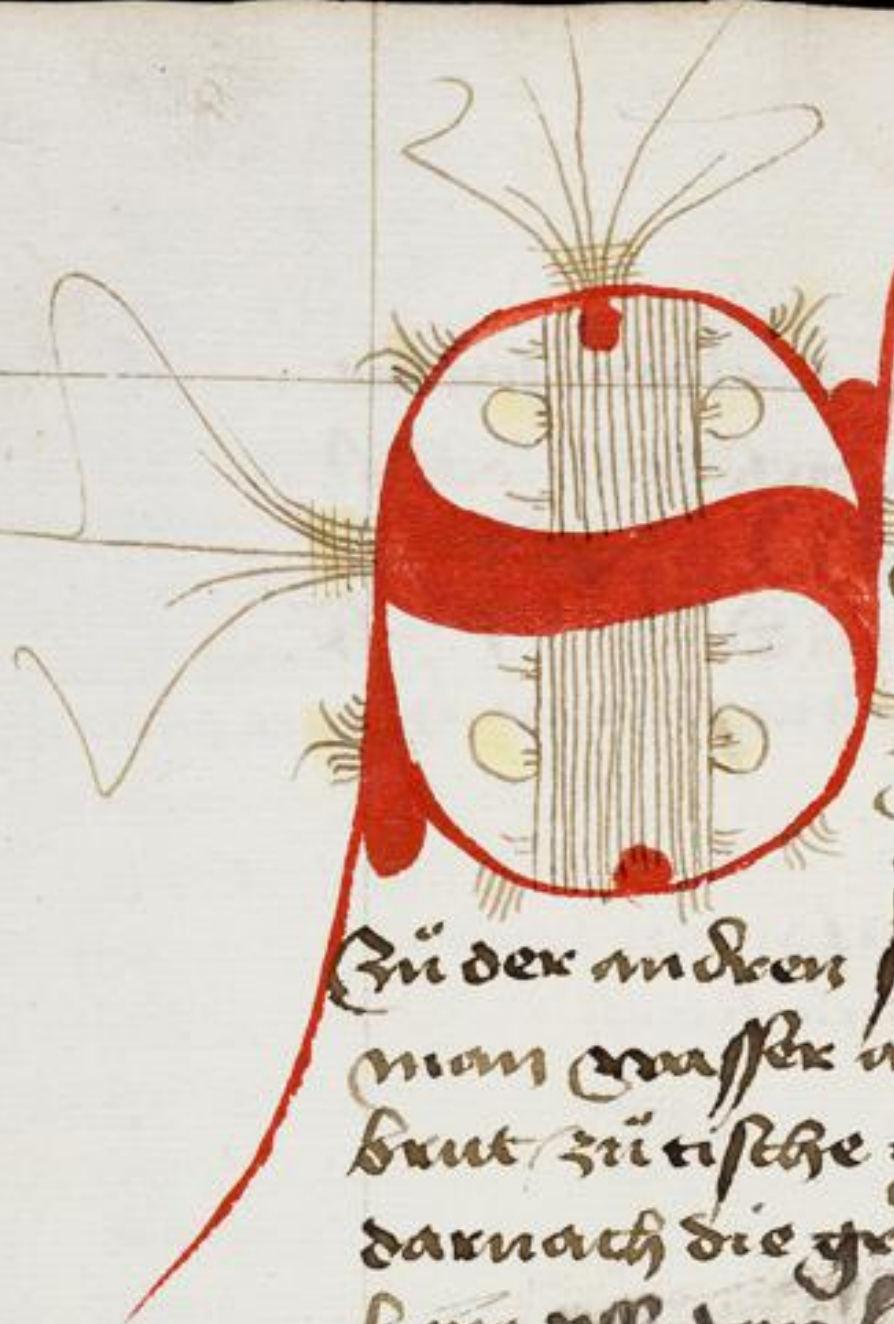 S
Zů der andren
man wasser a
brut zů tische
darnach die gr